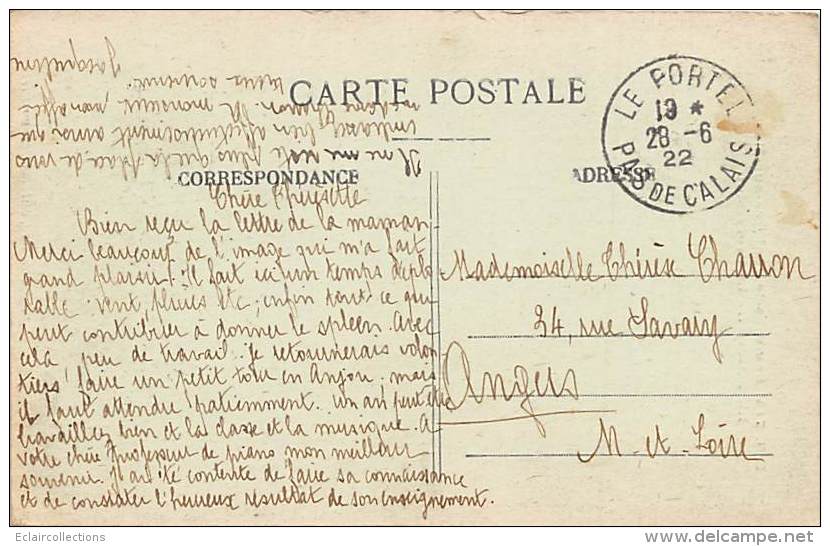 CARTE POSTALE
CORRESPONDANCE
ADRESSE
LE PORTEL
19 *
28 -6
22
PAS DE CALAIS
Chère Thérèsette
Bien reçu la lettre de la maman
Merci beaucoup de l'image qui m'a fait
grand plaisir. il fait ici un temps déplo
rable vent, pluies etc, enfin tout ce qui
peut contribuer à donner le spleen. Avec
celà peu de travail. je retournerais volon
tiers faire un petit tour en Anjou, mais
il faut attendre patiemment. un an peut être
travaillez bien et la classe et la musique. A
votre chère Professeur de piano mon meilleur
souvenir. j'ai été contente de faire sa connaissance
et de constater l'heureux résultat de son enseignement.
Il ne me reste plus que la place de vous
embrasser bien affectueusement ainsi que
Mademoiselle Thérèse
34, rue Savary
Angers
M-et-Loire
Eclaircollections
delcampe.net